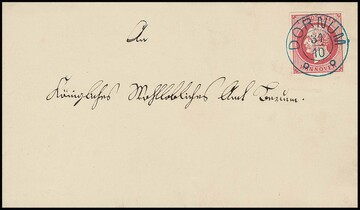 An
Königliches Wohllöbliches Amt Berum.
DORNUM
31
10
HANNOVER